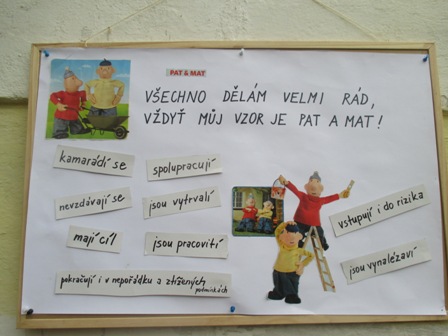 PAT & MAT
VŠECHNO DĚLÁM VELMI RÁD,
VŽDYŤ MŮJ VZOR JE PAT A MAT!
kamarádí se
spolupracují
nevzdávají se
jsou vytrvalí
mají cíl
jsou pracovití
pokračují i v nepořádku a ztížených
podmínkách
vstupují i do rizika
jsou vynalézaví